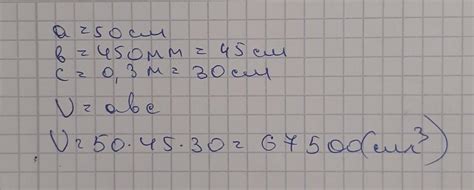 a = 50 см
в = 450 мм = 45 см
c = 0,3 м = 30 см
V = abc
V = 50 · 45 · 30 = 67500 (см³)